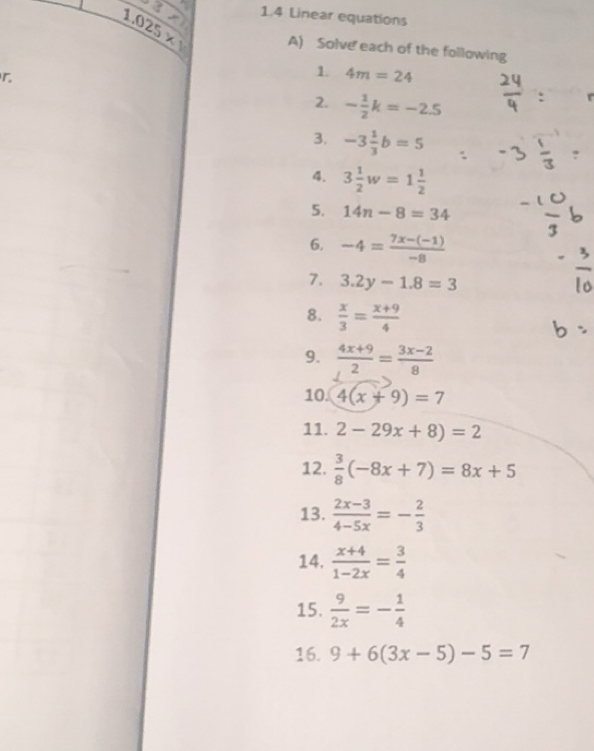 1.025 ×
r.
1.4 Linear equations
A) Solve each of the following
1. 4m = 24
24/4 :
2. −1/2 k = −2.5
3. −3 1/3 b = 5
: -3 1/3 =
4. 3 1/2 w = 1 1/2
-10/3 b
5. 14n − 8 = 34
6. −4 = 7x−(−1)/−8
- 3/10
7. 3.2y − 1.8 = 3
8. x/3 = x+9/4
b =
9. 4x+9/2 = 3x−2/8
10. 4(x + 9) = 7
11. 2 − 29x + 8) = 2
12. 3/8 (−8x + 7) = 8x + 5
13. 2x−3/4−5x = −2/3
14. x+4/1−2x = 3/4
15. 9/2x = −1/4
16. 9 + 6(3x − 5) − 5 = 7